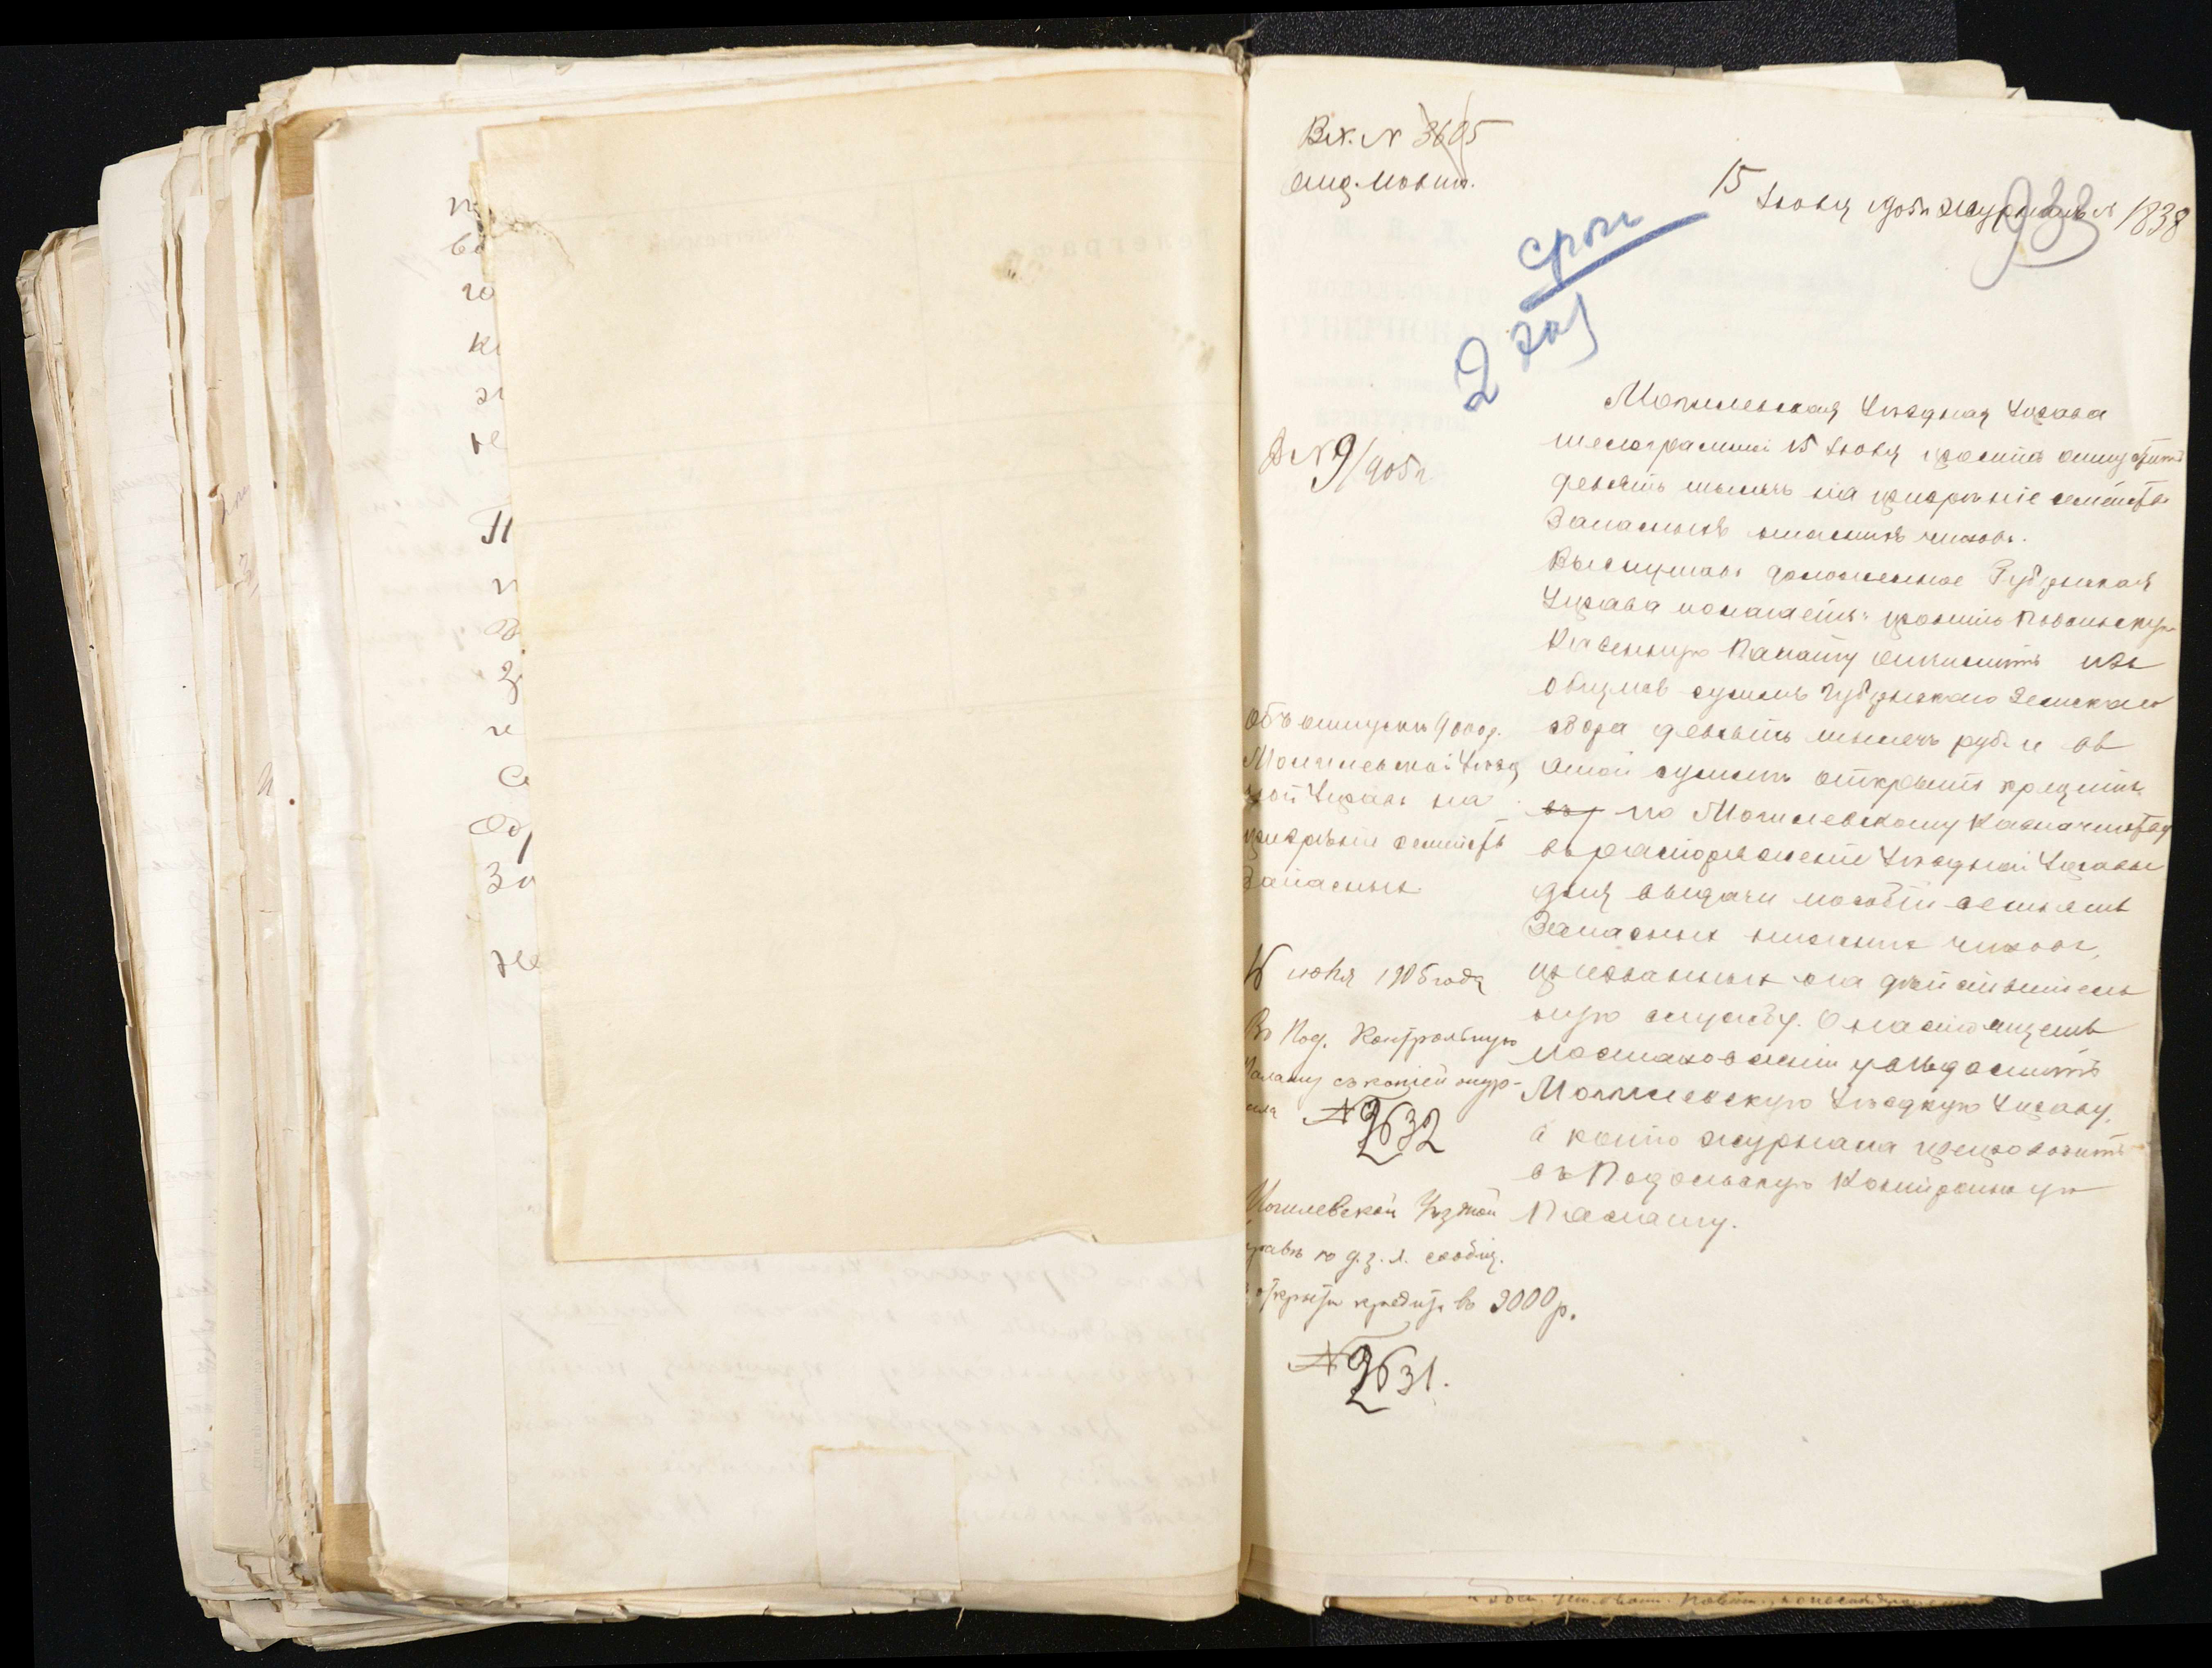 Вх. N 3605
15 Iюня 1905 г. Журналъ N 1838
938
срок
2 заз
Могилевская Уѣздная Управа
телеграммой 15 Iюня проситъ отпустить
девять тысячъ на призрѣніе семействъ
Запасныхъ нижнихъ чиновъ.
Выслушавъ доложенное Губернская
Управа полагаетъ: просить Подольскую
Казенную Палату отчислить изъ
общихъ суммъ Губернскаго Земскаго
сбора девять тысячъ руб. и въ
этой суммѣ открыть кредитъ
по Могилевскому Казначейству
въ распоряженіе Уѣздной Управы
для выдачи пособій семьямъ
Запасныхъ нижнихъ чиновъ,
призванныхъ на дѣйствитель
ную службу. О настоящемъ
постановленіи увѣдомить
Могилевскую Уѣздную Управу,
а копію журнала препроводить
въ Подольскую Контрольную
Палату.
Д N 9/905 г.
Объ отпускѣ 9000 р.
Могилевской Уѣзд
ной Управѣ на
призрѣніе семействъ
Запасныхъ
16 июня 1905 года
Въ Под. Контрольную
Палату съ копіей жур-
нала N 3632
Могилевской Уѣздной
управѣ по д.з.х. сообщ.
открыти кредита въ 9000 р.
N 3631.
по
во
го
П
З
С
Об
За
не